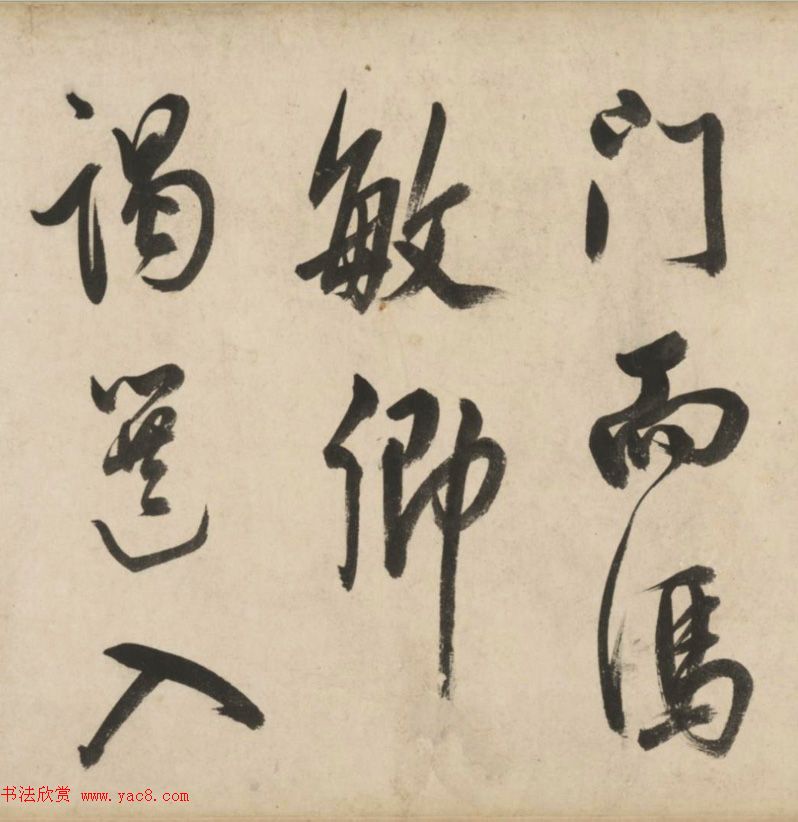 門而馮
敏卿
謁選入
书法欣赏 www.yac8.com